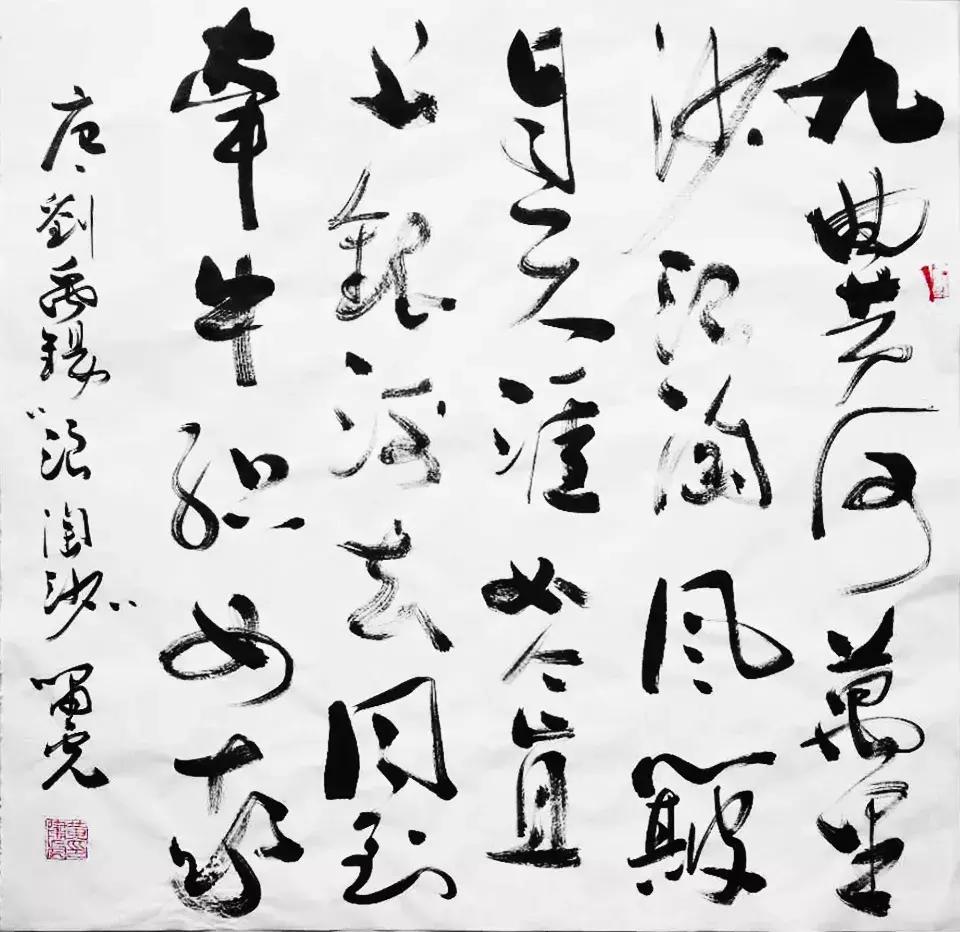 九曲黄河萬里
沙浪淘风簸
自天涯如今直
上銀河去同到
牽牛织女家
唐劉禹錫“浪淘沙”